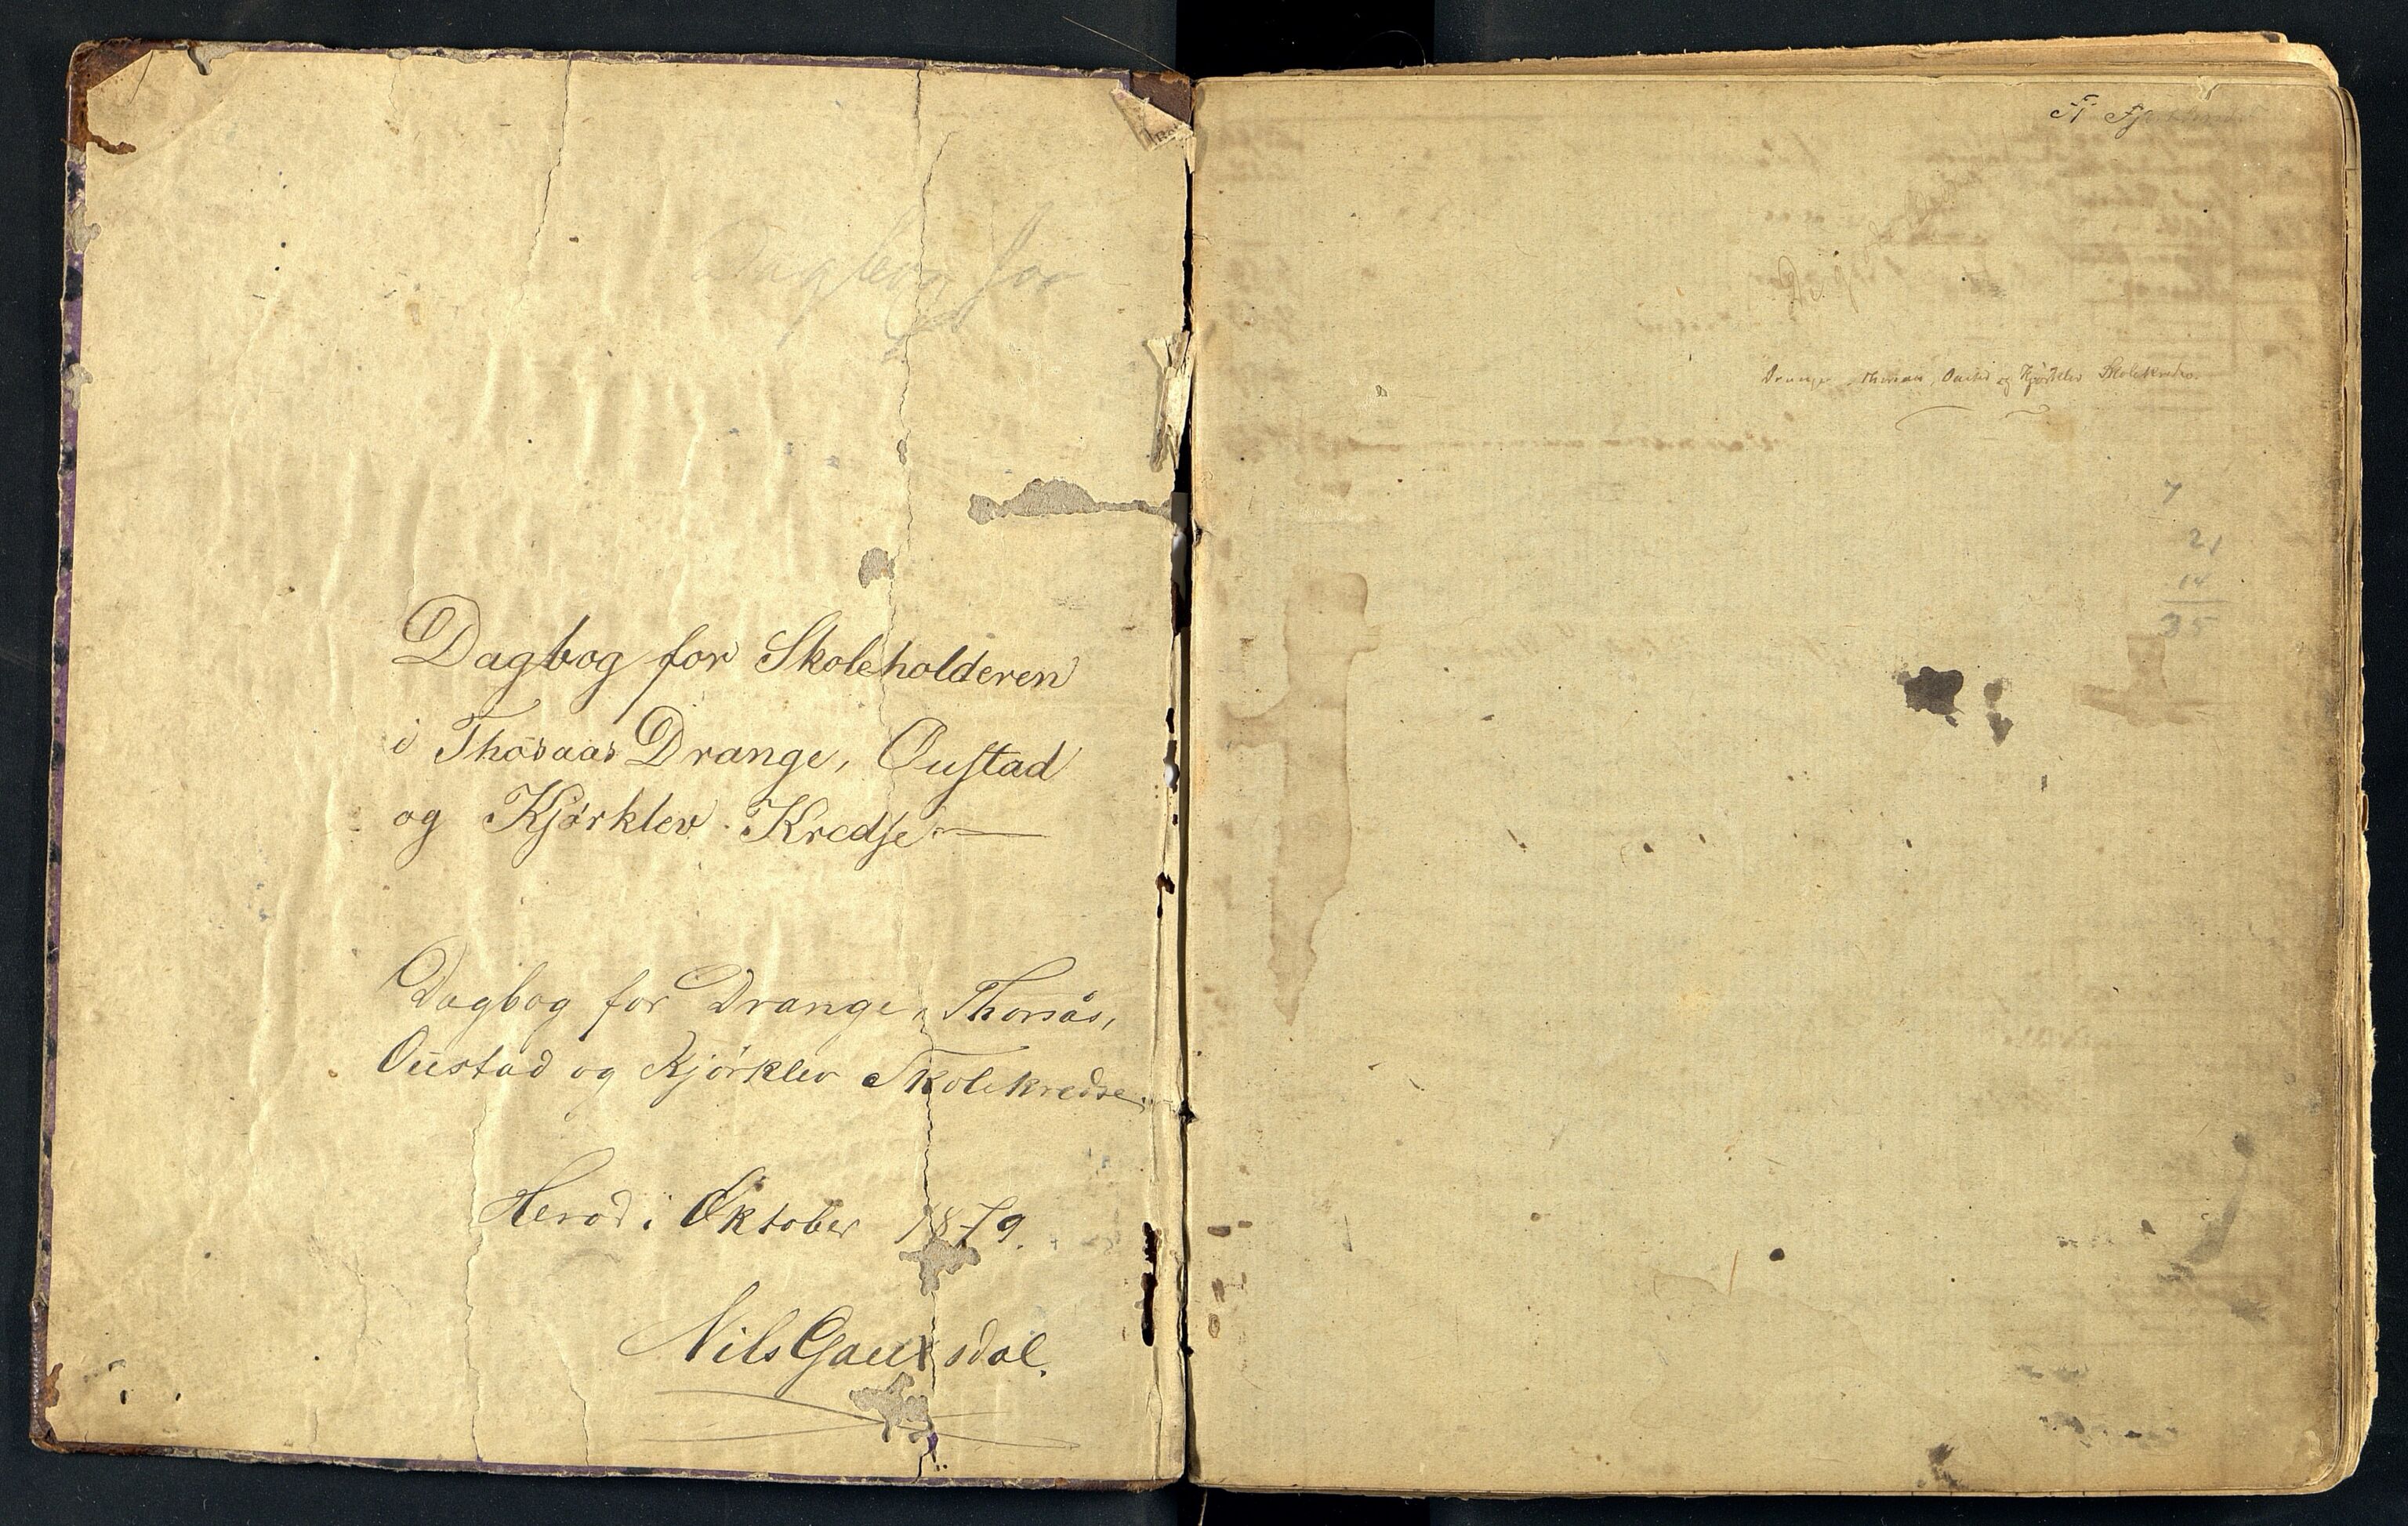 Dagbog for
Dagbog for Skoleholderen
i Thosaas Drange, Oustad
og Kjørklev Kredse
Dagbog for Drange, Thorsås,
Oustad og Kjørklev Skolekredse.
Herad i Oktober 1879.
Nils Gauksdal.
Drange, Thosaas, Oustad og Kjørklev Skolekredse.
7
21
14
35